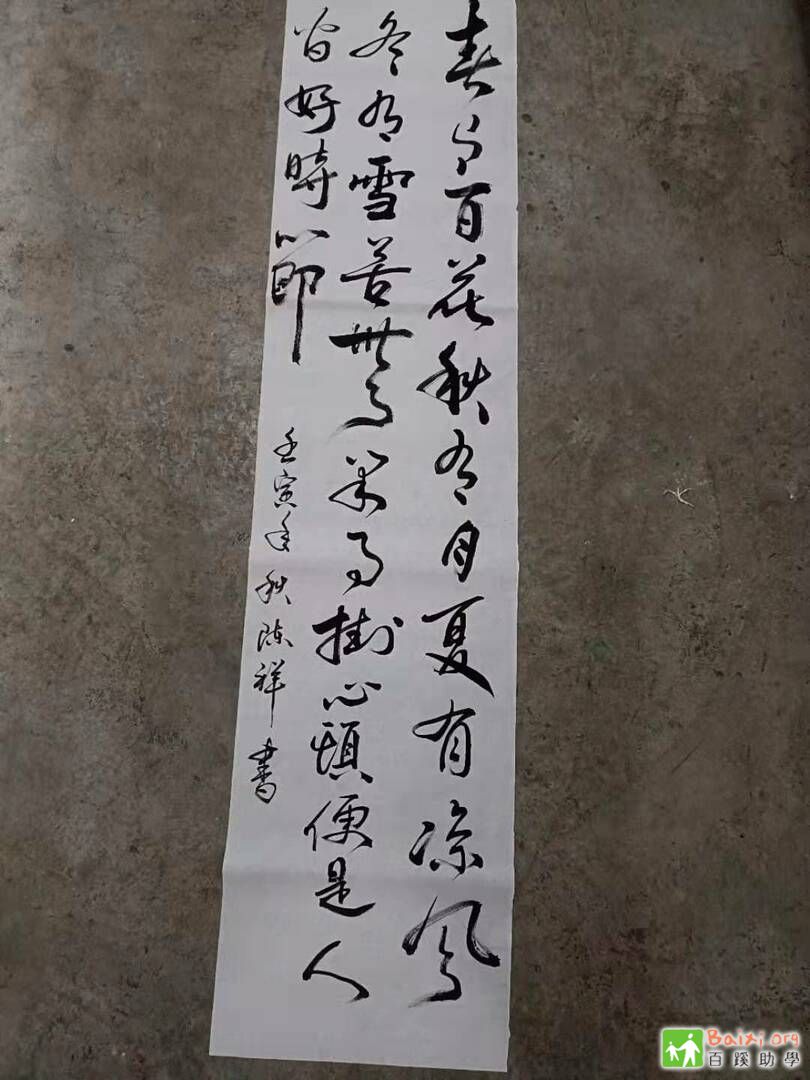 春有百花秋有月夏有凉風
冬有雪若無閑事掛心頭便是人
間好時節
壬寅年秋陈祥書
Baixi.Org
百蹊助學